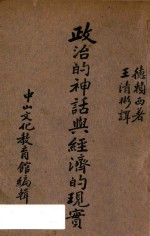 王清彬譯
政治的神話與經濟的現實
中山文化教育館編輯